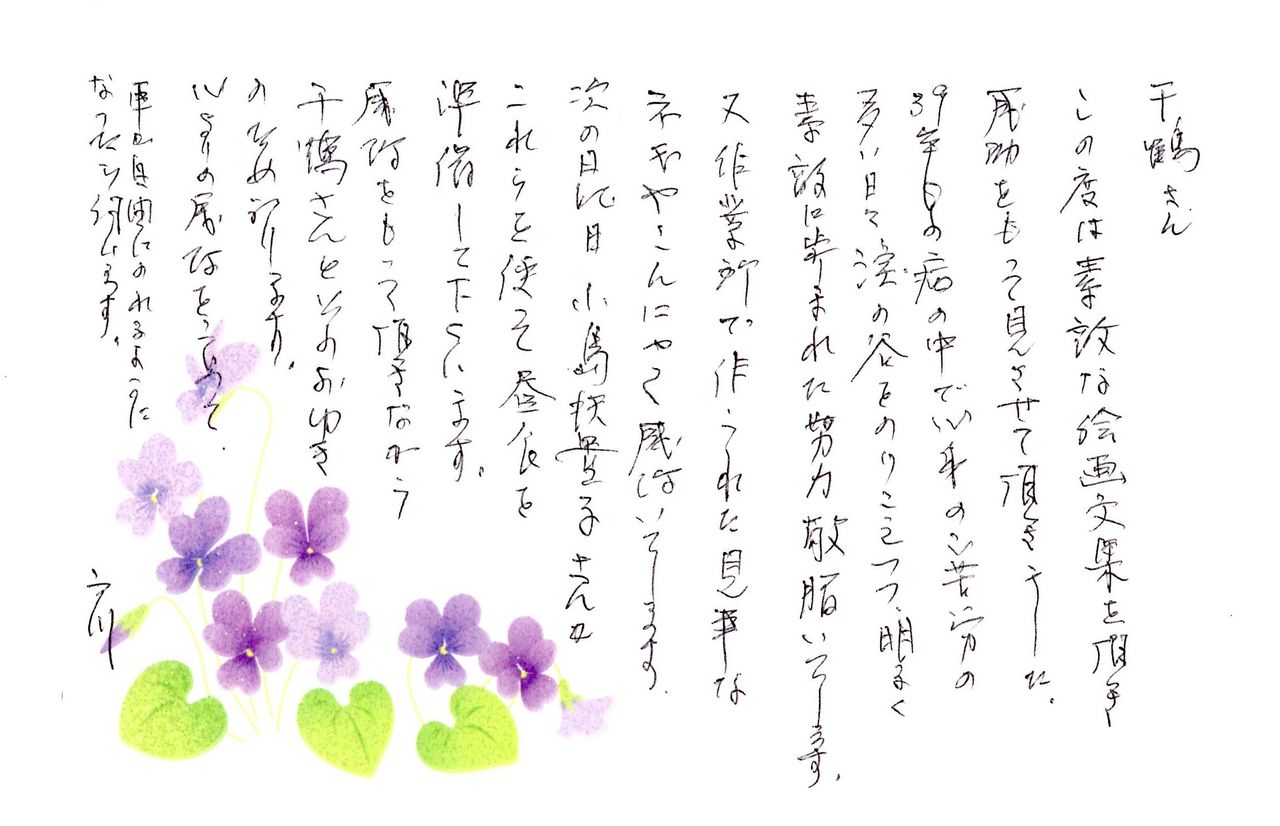 千鶴さん
この度は素敵な絵画文集を頂き
感動をもって見させて頂きました。
39年目の病の中で心身のご苦労の
多い日々 涙の谷をのりこえつつ、明るく
素敵に歩まれた努力敬服いたします。
又 作業所で作られた見事な
ネギやこんにゃく感謝いたします。
次の日 小島 さんが
これらを使って昼食を
準備して下さいます。
感謝をもって頂きながら
千鶴さんと
のため祈ります。
心よりの感謝をこめて。
車 自由にのれるように
なったら伺います。